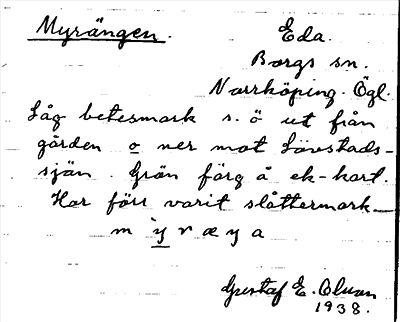 Myrängen.
Eda.
Borgs sn.
Norrköping. Ögl.
Låg betesmark s. ö ut från
gården o ner mot Lövstads-
sjön. Grön färg å ek-kart.
Har förr varit slåttermark
m y r æ ŋ a
Gustaf E.
1938.